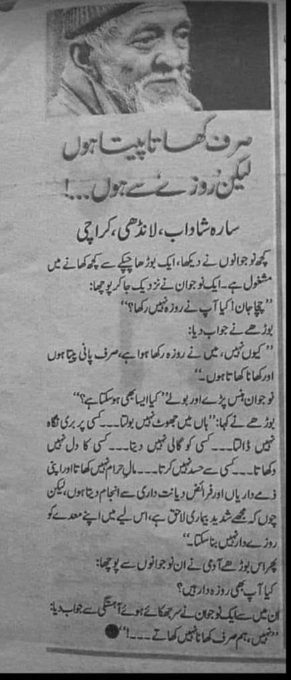 صرف کھاتا پیتا ہوں
لیکن 'روزے' سے ہوں...!
سارہ شاداب، لانڈھی، کراچی
کچھ نوجوانوں نے دیکھا، ایک بوڑھا چپکے سے کچھ کھانے میں
مشغول ہے۔ ایک نوجوان نے نزدیک جا کر پوچھا:
”چچا جان! کیا آپ نے روزہ نہیں رکھا؟“
بوڑھے نے جواب دیا:
”کیوں نہیں، میں نے روزہ رکھا ہوا ہے، صرف پانی پیتا ہوں
اور کھانا کھاتا ہوں۔“
نوجوان ہنس پڑے اور بولے ”کیا ایسا بھی ہو سکتا ہے؟“
بوڑھے نے کہا: ”ہاں میں جھوٹ نہیں بولتا۔۔۔ کسی پر بری نگاہ
نہیں ڈالتا۔۔۔ کسی کو گالی نہیں دیتا۔۔۔ کسی کا دل نہیں
دکھاتا۔۔۔ کسی سے حسد نہیں کرتا۔۔۔ مال حرام نہیں کھاتا اور اپنی
ذمے داریاں اور فرائض دیانت داری سے انجام دیتا ہوں، لیکن
چوں کہ مجھے شدید بیماری لاحق ہے، اس لیے میں اپنے معدے کو
روزے دار نہیں بنا سکتا۔“
پھر اس بوڑھے آدمی نے ان نوجوانوں سے پوچھا:
کیا آپ بھی روزہ دار ہیں؟
ان میں سے ایک نوجوان نے سر جھکائے ہوئے آہستگی سے جواب دیا:
”نہیں، ہم صرف کھانا نہیں کھاتے۔۔۔!“